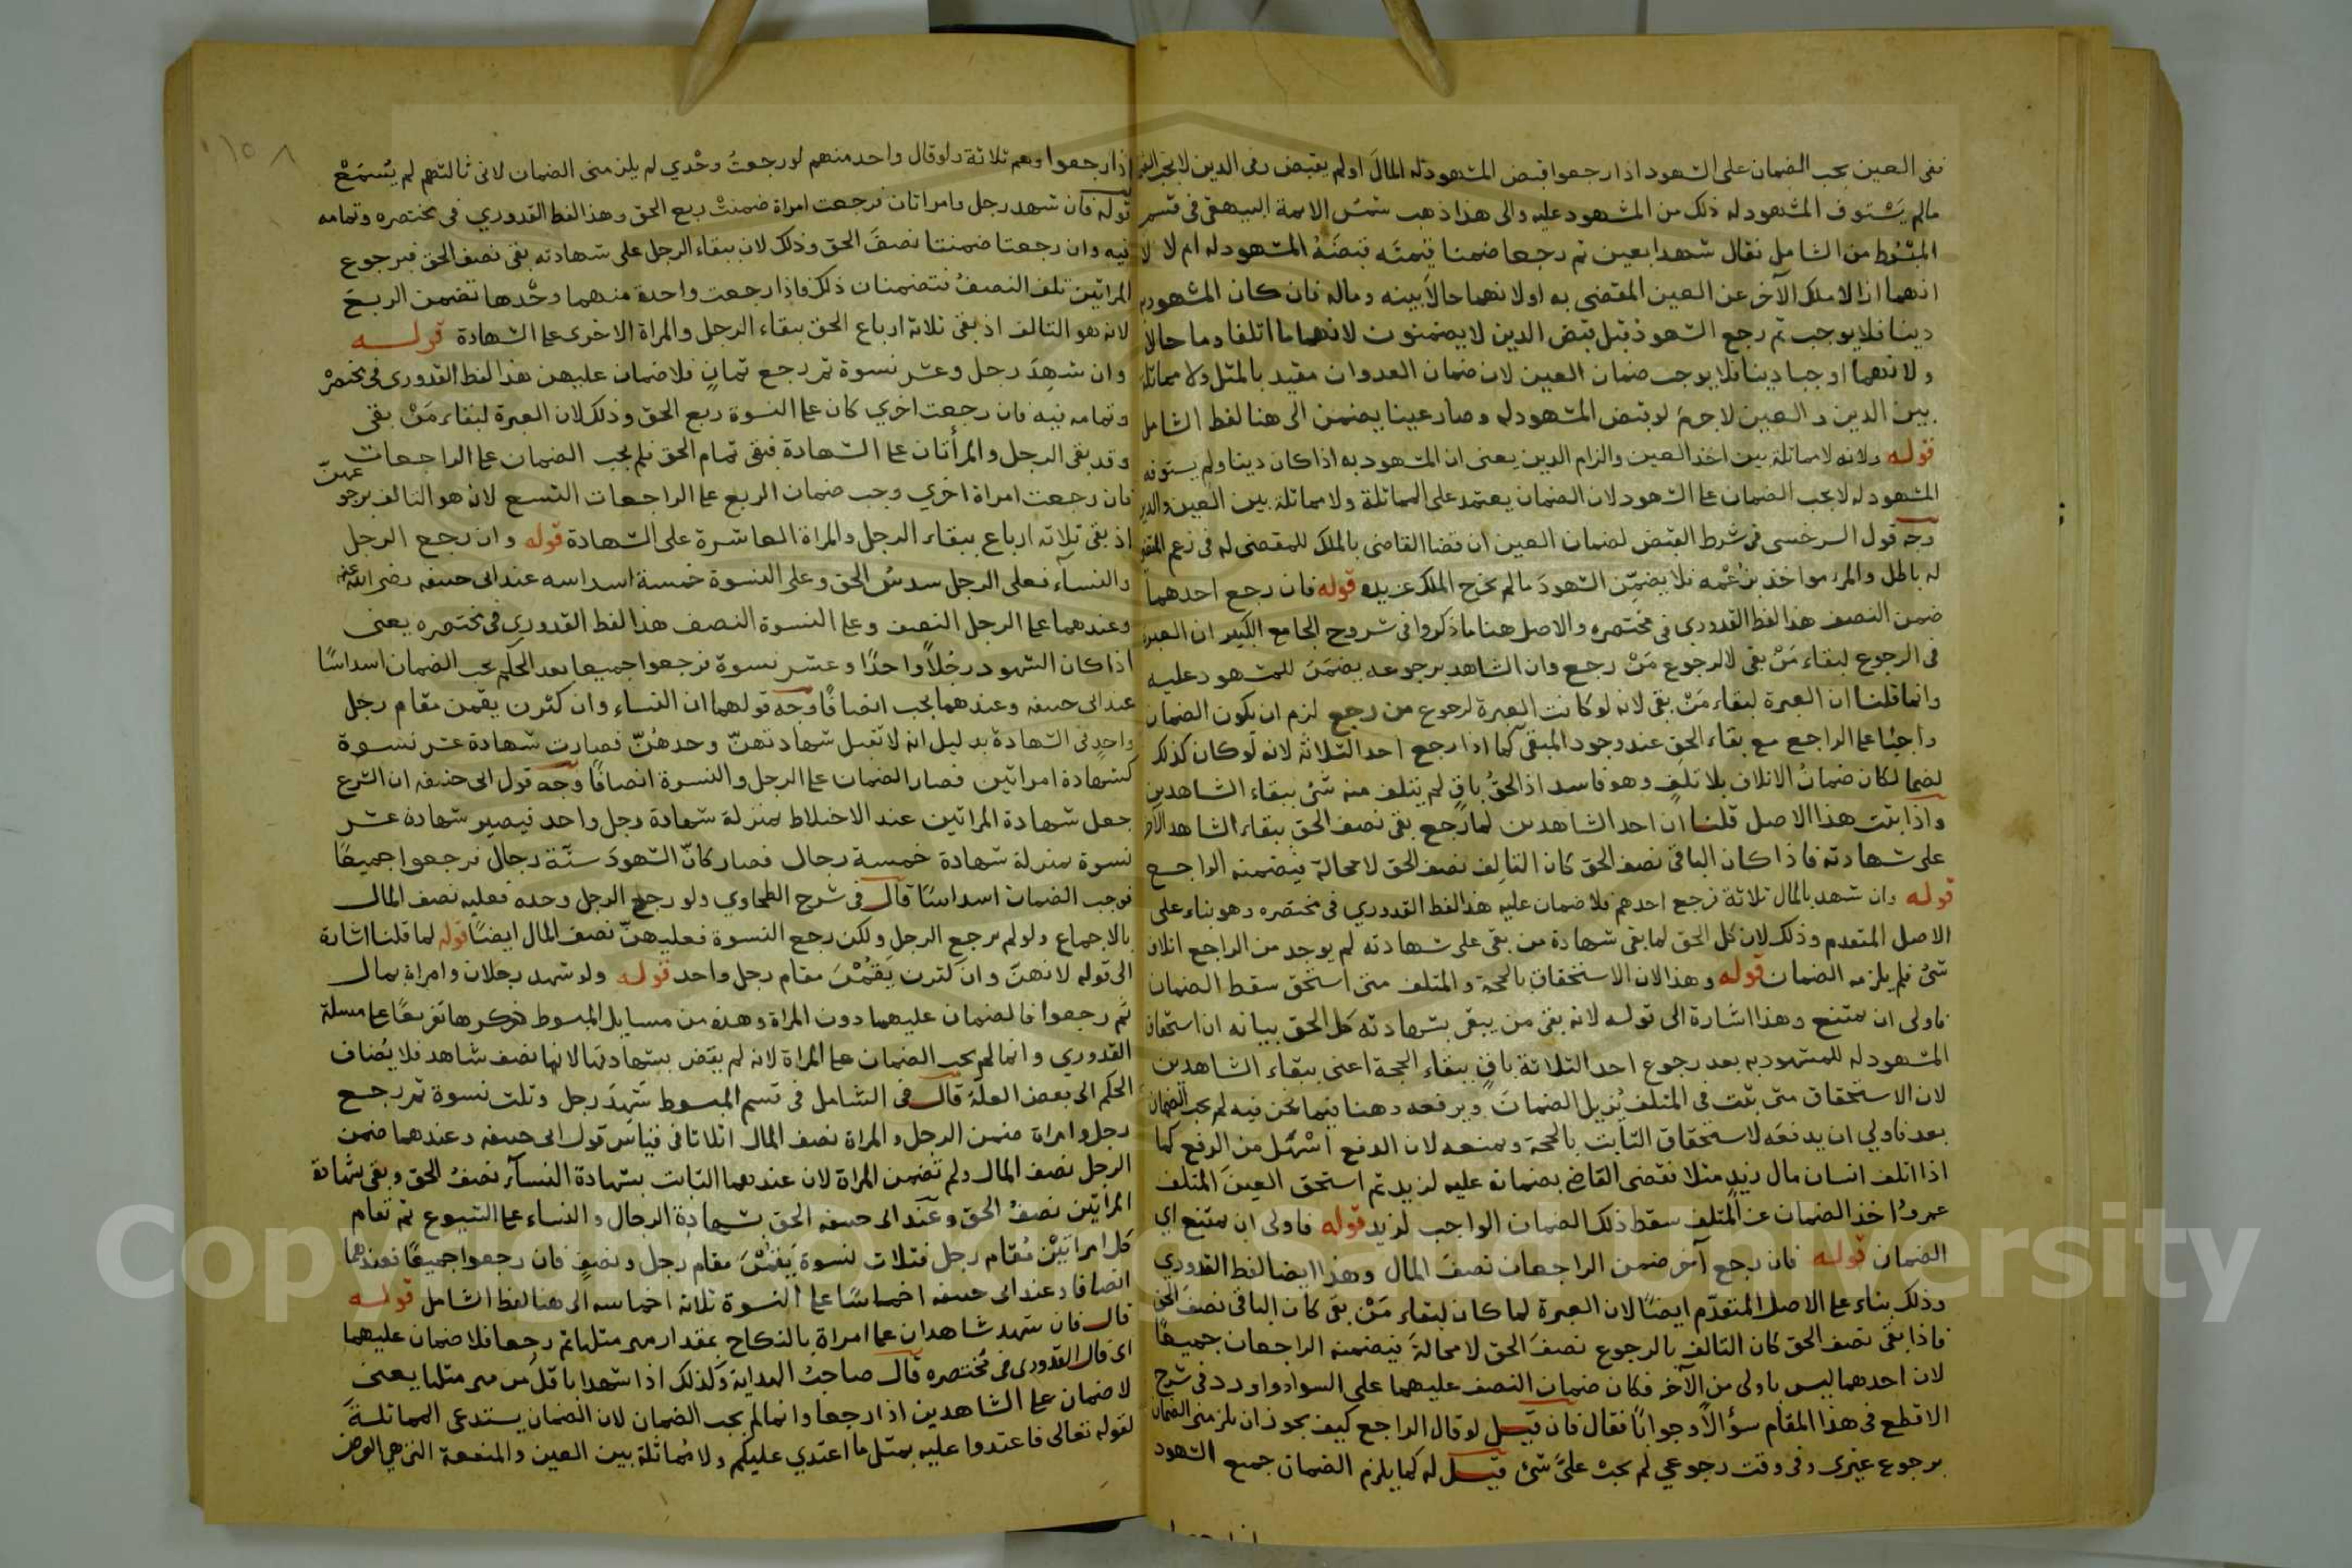 ففى العين يجب الضمان على الشهود اذا رجعوا قبض المشهود له المال او لم يقبض وفى الدين لا يجب
مالم يستوف المشهود له ذلك من المشهود عليه والى هذا ذهب شمس الائمة البيهقى فى قسم
المبسوط من الشامل فقال شهدا بعين ثم رجعا ضمنا قيمته قبضه المشهود له ام لا لا
انهما ازالا ملك الآخر عن العين المقضى به او لانهما حالا بينه وماله فان كان المشهود به
دينا فلا يوجب ثم رجع الشهود قبل قبض الدين لا يضمنون لانهما ما اتلفا وما حالا
ولانهما اوجبا دينا فلا يوجب ضمان العين لان ضمان العدوان مقيد بالمثل ولا مماثلة
بين الدين والعين لا جرم لو قبض المشهود له وصار عينا يضمن الى هنا لفظ الشامل
قوله ولانه لا مماثلة بين اخذ العين والزام الدين يعنى ان المشهود به اذا كان دينا ولم يستوفه
المشهود له لا يجب الضمان على الشهود لان الضمان يعتمد على المماثلة ولا مماثلة بين العين والدين
وجه قول السرخسى فى شرط القبض لضمان العين ان قضا القاضى بالملك للمقضى له فى زعم
له باطل والمرء مواخذ بزعمه فلا يضمن الشهود مالم يخرج الملك عن يده قوله فان رجع احدهما
ضمن النصف هذا لفظ القدورى فى مختصره والاصل هنا ما ذكروا فى شروح الجامع الكبير ان العبرة
فى الرجوع لبقاء من بقى لا لرجوع من رجع وان الشاهد برجوعه يضمن للمشهود عليه
وانما قلنا ان العبرة لبقاء من بقى لانه لو كانت العبرة لرجوع من رجع لزم ان يكون الضمان
واجبا على الراجع مع بقاء الحق عند وجود المبقى كما اذا رجع احد الثلاثة لانه لو كان كذلك
لكان ضمان الاتلاف بلا تلف وهو فاسد اذ الحق باق لم يتلف منه شئ ببقاء الشاهدين
واذا ثبت هذا الاصل قلنا ان احد الشاهدين لما رجع بقى نصف الحق ببقاء الشاهد الآخر
على شهادته فاذا كان الباقى نصف الحق كان التالف نصف الحق لا محالة فيضمنه الراجع
قوله وان شهد بالمال ثلاثة فرجع احدهم فلا ضمان عليه هذا لفظ القدوري فى مختصره وهو بناء على
الاصل المتقدم وذلك لان كل الحق لما بقى شهادة من بقى على شهادته لم يوجد من الراجع اتلاف
شئ فلم يلزمه الضمان قوله وهذا لان الاستحقاق باق بالحجة والمتلف متى استحق سقط الضمان
فاولى ان يمتنع وهذا اشارة الى قوله لانه بقى من يبقى بشهادته كل الحق بيانه ان استحقاق
المشهود له للمشهود به بعد رجوع احد الثلاثة باق ببقاء الحجة اعنى ببقاء الشاهدين
لان الاستحقاق متى ثبت فى المتلف يزيل الضمان ويرفعه وهنا فيما نحن فيه لم يجب الضمان
بعد فاولي ان يدفعه لاستحقاق الثابت بالحجة ويمنعه لان الدفع اسهل من الرفع كما
اذا اتلف انسان مال زيد مثلا فقضى القاضى بضمانه عليه لزيد ثم استحق العين المتلف
عمرو اخذ الضمان عن المتلف سقط ذلك الضمان الواجب لزيد قوله فاولى ان يمتنع اي
الضمان قوله فان رجع آخر ضمن الراجعان نصف المال وهذا ايضا لفظ القدوري
وذلك بناء على الاصل المتقدم ايضا لان العبرة لما كان لبقاء من بقى كان الباقى نصف الحق
فاذا بقى نصف الحق كان التالف بالرجوع نصف الحق لا محالة فيضمنه الراجعان جميعا
لان احدهما ليس باولى من الآخر فكان ضمان النصف عليهما على السواء واورد فى شرح
الاقطع فى هذا المقام سؤالا وجوابا فقال فان قيل لو قال الراجع كيف يجوز ان يلزمنى الضمان
برجوع غيرى وفى وقت رجوعي لم يجب علي شئ قيل له كما يلزم الضمان جميع الشهود
اذا رجعوا وهم ثلاثة ولو قال واحد منهم لو رجعت وحدي لم يلزمنى الضمان لانى ثالثهم لم يسمع
قوله فان شهد رجل وامراتان فرجعت امراة ضمنت ربع الحق وهذا لفظ القدوري فى مختصره وتمامه
فيه وان رجعتا ضمنتا نصف الحق وذلك لان ببقاء الرجل على شهادته بقى نصف الحق فبرجوع
المراتين تلف النصف فتضمنان ذلك فاذا رجعت واحدة منهما وحدها تضمن الربع
لانه هو التالف اذ بقى ثلاثة ارباع الحق ببقاء الرجل والمراة الاخرى على الشهادة قوله
وان شهد رجل وعشر نسوة ثم رجع ثمان فلا ضمان عليهن هذا لفظ القدورى فى مختصره
وتمامه فيه فان رجعت اخري كان على النسوة ربع الحق وذلك لان العبرة لبقاء من بقى
وقد بقى الرجل والمرأتان على الشهادة فبقى تمام الحق فلم يجب الضمان على الراجعات
فان رجعت امراة اخري وجب ضمان الربع على الراجعات التسع لانه هو التالف برجوعهن
اذ بقى ثلاثة ارباع ببقاء الرجل والمراة العاشرة على الشهادة قوله وان رجع الرجل
والنسآء فعلى الرجل سدس الحق وعلى النسوة خمسة اسداسه عند ابى حنيفه رضى الله عنه
وعندهما على الرجل النصف وعلى النسوة النصف هذا لفظ القدوري فى مختصره يعنى
اذا كان الشهود رجلا واحدا وعشر نسوة فرجعوا جميعا بعد الحكم يجب الضمان اسداسا
عند ابى حنيفه وعندهما يجب انصافا وجه قولهما ان النساء وان كثرن يقمن مقام رجل
واحد فى الشهادة بدليل انه لا تقبل شهادتهن وحدهن فصارت شهادة عشر نسوة
كشهادة امراتين فصار الضمان على الرجل والنسوة انصافا وجه قول ابى حنيفه ان الشرع
جعل شهادة المراتين عند الاختلاط بمنزلة شهادة رجل واحد فيصير شهادة عشر
نسوة بمنزلة شهادة خمسة رجال فصار كان الشهود ستة رجال فرجعوا جميعا
فوجب الضمان اسداسا قال فى شرح الطحاوي ولو رجع الرجل وحده فعليه نصف المال
بالاجماع ولو لم يرجع الرجل ولكن رجع النسوة فعليهن نصف المال ايضا قوله لما قلنا اشارة
الى قوله لانهن وان كثرن يقمن مقام رجل واحد قوله ولو شهد رجلان وامراة بمال
ثم رجعوا فالضمان عليهما دون المراة وهذه من مسايل المبسوط ذكرها تفريعا على مسلة
القدوري وانما لم يجب الضمان على المراة لانه لم يقض بشهادتها لانها نصف شاهد فلا يضاف
الحكم الى بعض العلة قال فى الشامل فى قسم المبسوط شهد رجل وثلث نسوة ثم رجع
رجل وامراة ضمن الرجل والمراة نصف المال اثلاثا فى قياس قول ابى حنيفه وعندهما ضمن
الرجل نصف المال ولم تضمن المراة لان عندهما الثابت بشهادة النسآء نصف الحق وبقى شهادة
المراتين نصف الحق وعند ابى حنيفه الحق بشهادة الرجال والنساء على الشيوع ثم تقام
كل امراتين مقام رجل فثلاث نسوة يقمن مقام رجل ونصف فان رجعوا جميعا فعندهما
انصافا وعند ابى حنيفه اخماسا على النسوة ثلاثة اخماسه الى هنا لفظ الشامل قوله
قال فان شهد شاهدان على امراة بالنكاح بمقدار مهر مثلها ثم رجعا فلا ضمان عليهما
اى قال القدورى فى مختصره قال صاحب الهداية وكذلك اذا شهدا باقل من مهر مثلها يعنى
لا ضمان على الشاهدين اذا رجعا وانما لم يجب الضمان لان الضمان يستدعى المماثلة
لقوله تعالى فاعتدوا عليه بمثل ما اعتدي عليكم ولا مماثلة بين العين والمنفعة
Copyright © King Saud University